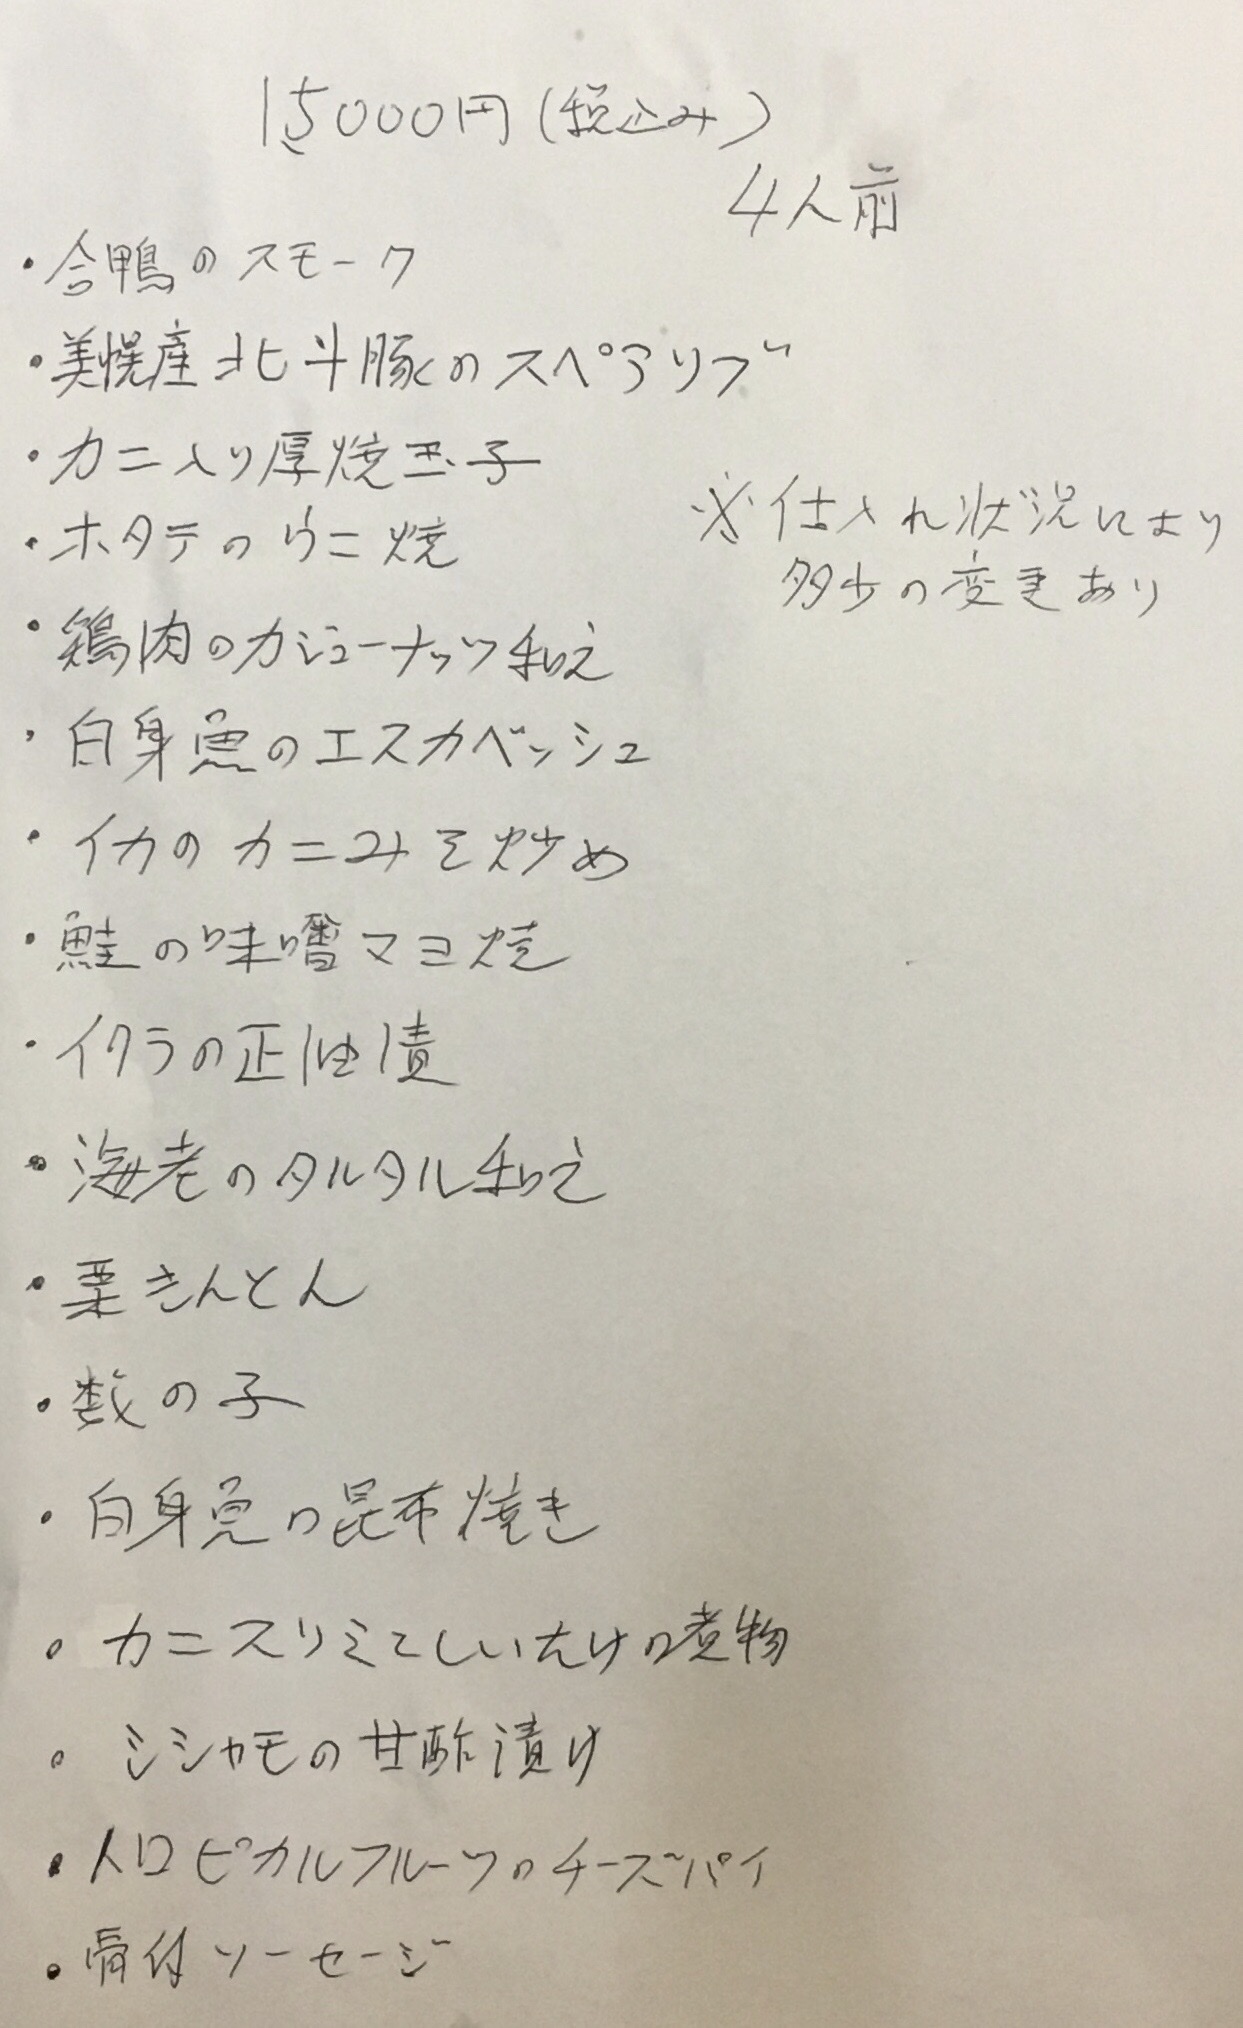 15000円(税込み)
4人前
・合鴨のスモーク
・美幌産北斗豚のスペアリブ
・カニ入り厚焼玉子
・ホタテのウニ焼
※仕入れ状況により
多少の変更あり
・鶏肉のカシューナッツ和え
・白身魚のエスカベッシュ
・イカのカニみそ炒め
・鮭の味噌マヨ焼
・イクラの正油漬
・海老のタルタル和え
・栗きんとん
・数の子
・白身魚の昆布焼き
・カニスリミとしいたけの煮物
・シシャモの甘酢漬け
・トロピカルフルーツのチーズパイ
・骨付ソーセージ